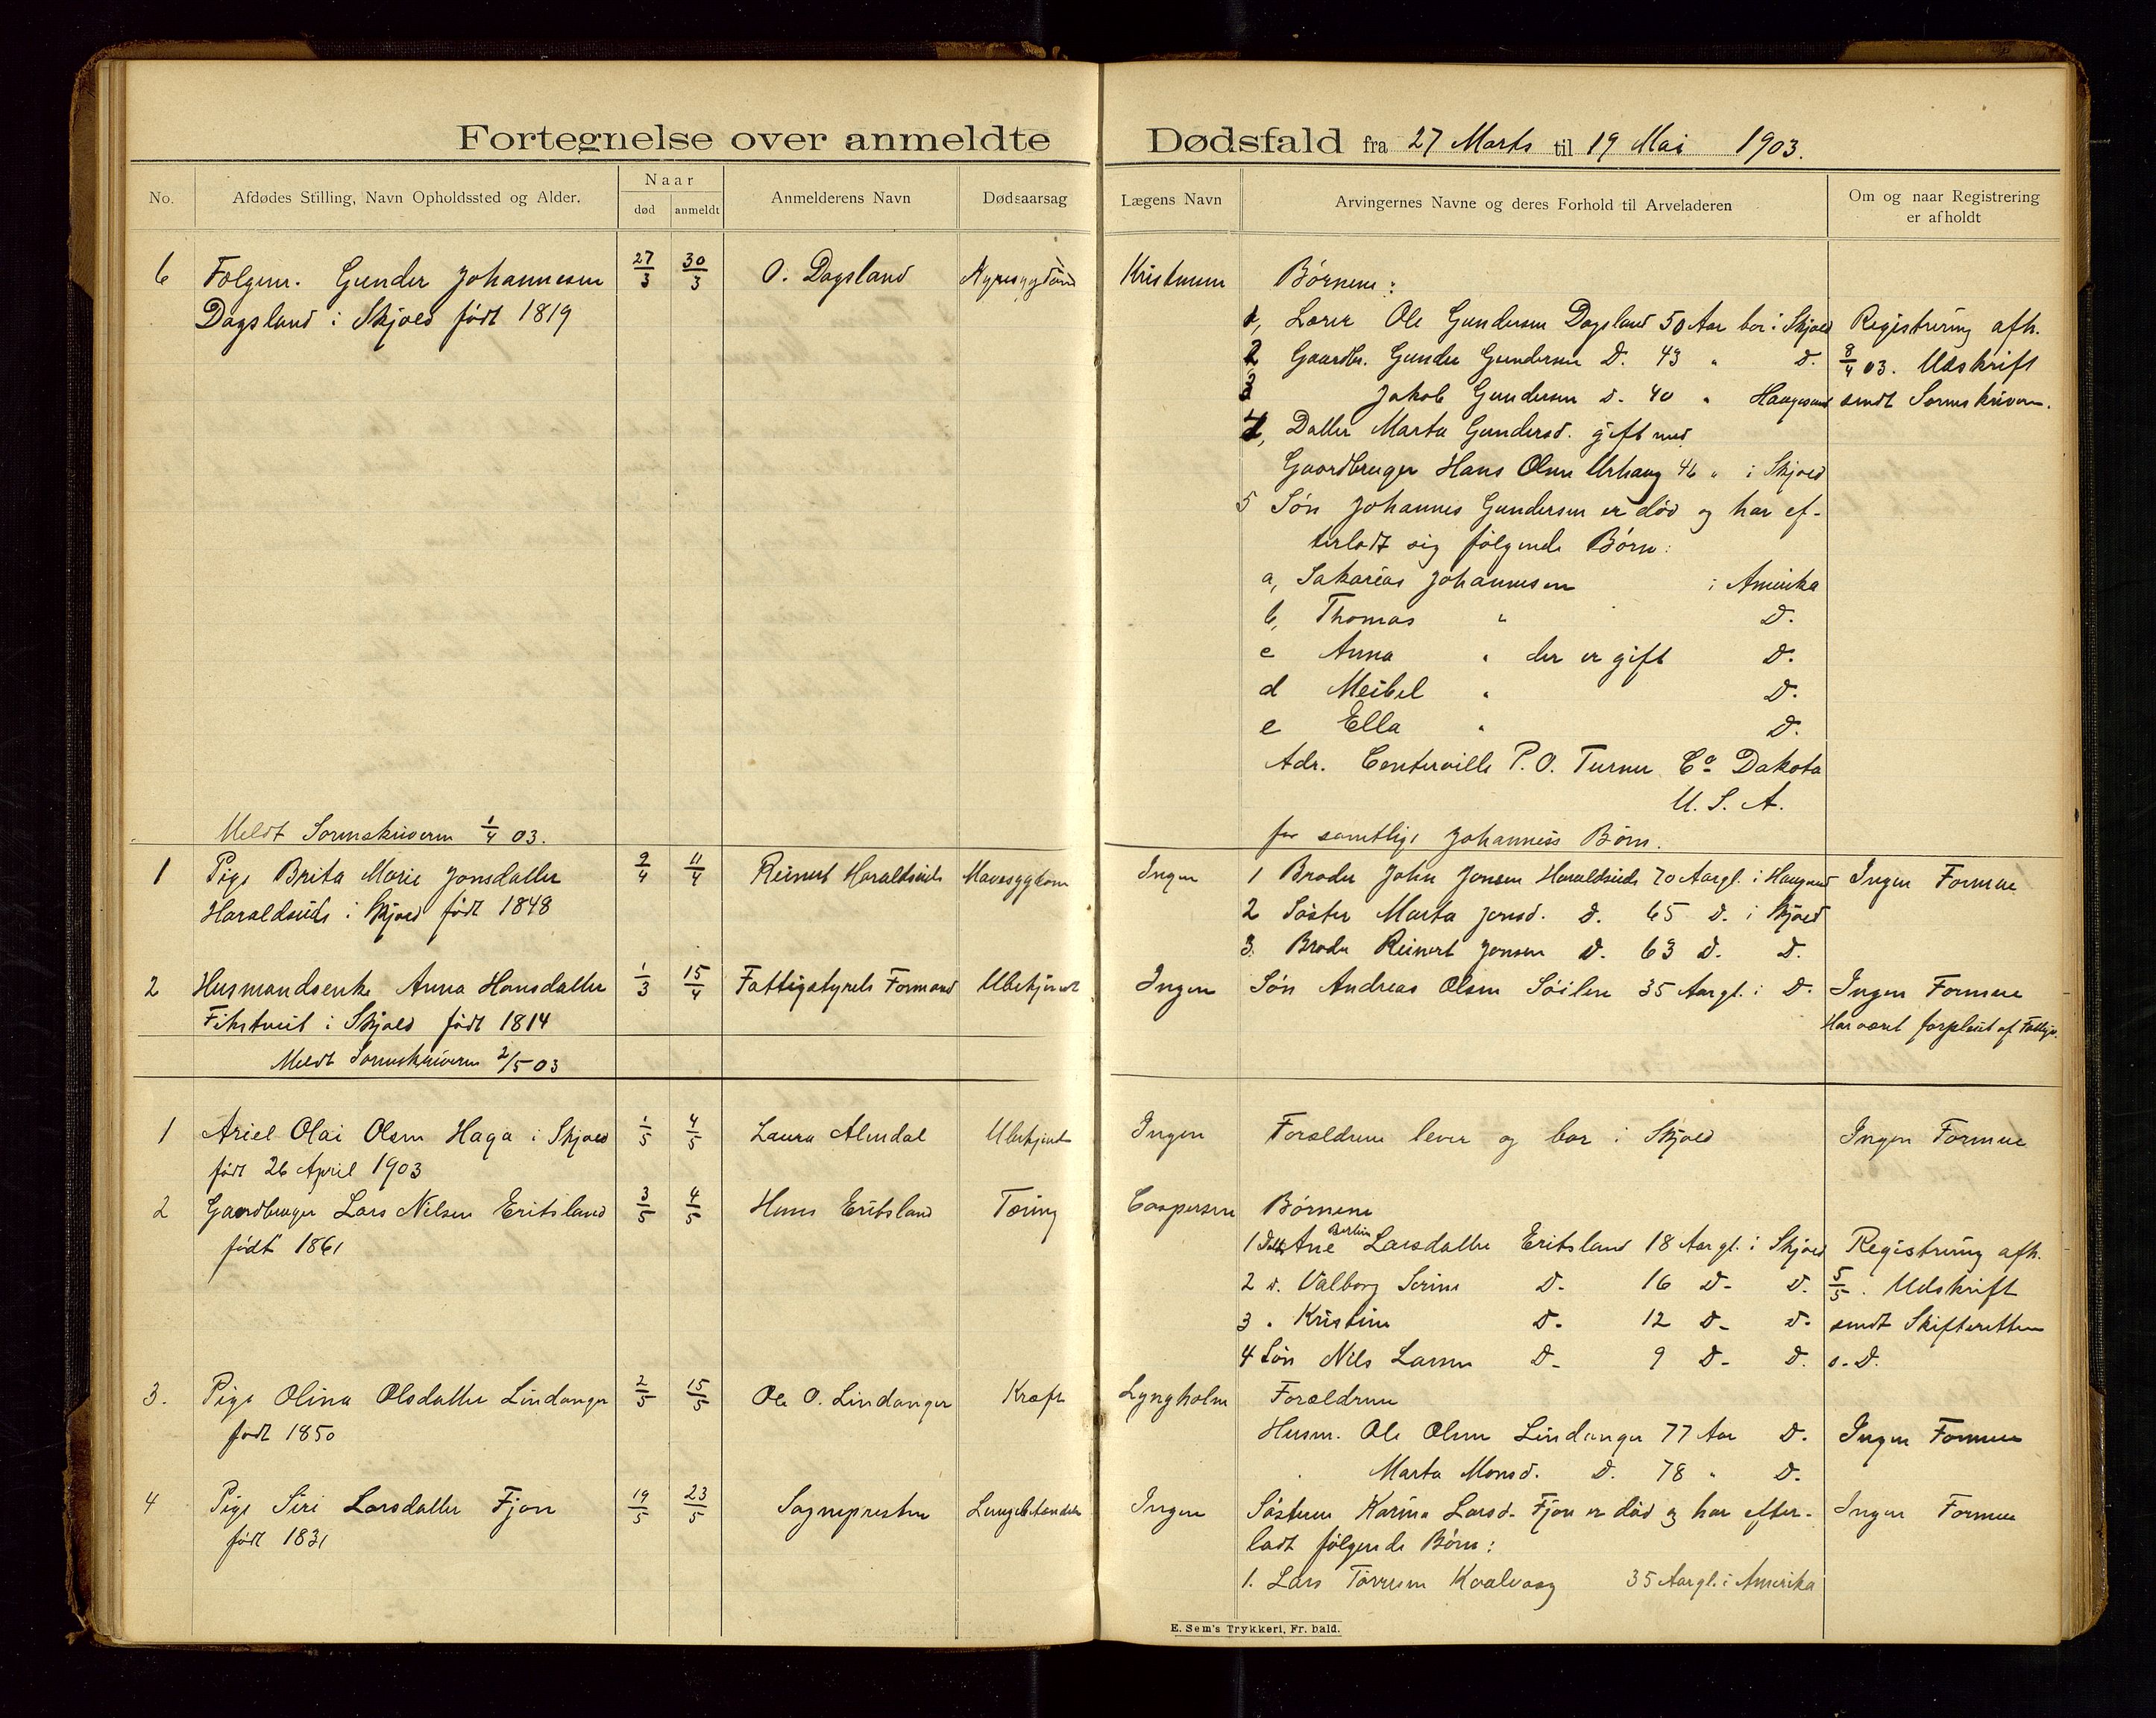 Fortegnelse over anmeldte Dødsfald fra 27 Marts til 19 Mai 1903.
No. Afdødes Stilling, Navn Opholdssted og Alder. Naar død anmeldt Anmelderens Navn Dødsaarsag Lægens Navn Arvingernes Navne og deres Forhold til Arveladeren Om og naar Registrering er afholdt
6 Folgem. Gunder Johannesen 27/3 30/3 O. Dagsland Nyresygdom Kristensen Børnene:
Dagsland i Skjold født 1819
1, Lærer Ole Gundersen Dagsland 50 Aar bor i Skjold Registrering afh.
2 Gaardbr. Gunder Gundersen D. 43 " D. 8/4 03. Udskrift
3 Jakob Gundersen D. 40 " Haugesund sendt Sorenskriveren.
4, Datter Marta Gundersd. gift med
Gaardbruger Hans Olsen Urhaug 46 " i Skjold
5 Søn Johannes Gundersen er død og har ef-
terladt sig følgende Børn:
a, Sakarias Johannesen i Amerika
b, Thomas " D.
c Anna " der er gift D.
d Meibel " D.
e Ella " D.
Adr. Centerville P.O. Turner Co Dakota
U. S. A.
Meldt Sorenskriveren 1/4 03.
for samtlige Johannes's Børn.
1 Pige Brita Marie Jonsdatter 9/4 11/4 Reinert Haraldseide Mavesygdom Ingen 1 Broder John Jonsen Haraldseide 70 Aar gl. i Haugesund Ingen Formue
Haraldseide i Skjold født 1848 2 Søster Marta Jonsd. D. 65 D. i Skjold
3. Broder Reinert Jonsen D. 63 D. D.
2 Husmandsenke Anna Hansdatter 1/3 15/4 Fattigstyrets Formand Ubekjendt Ingen Søn Andreas Olsen Søilen 35 Aar gl. i D. Ingen Formue
Fikstveit i Skjold født 1814 Har været forpleiet af Fattigv.
Meldt Sorenskriveren 2/5 03
1 Ariel Olai Olsen Haga i Skjold 1/5 4/5 Laura Almdal Ubekjendt Ingen Forældrene lever og bor i Skjold Ingen Formue
født 26 April 1903
2 Gaardbruger Lars Nilsen Eritsland 3/5 4/5 Hans Eritsland Tæring Caspersen Børnene
født 1861 1 Datt. Ane Bertine Larsdatter Eritsland 18 Aar gl. i Skjold Registrering afh.
2 D. Valborg Serine D. 16 D. D. 5/5. Udskrift
3 " Kristine D. 12 D. D. sendt Skifteretten
4 Søn Nils Larsen D. 9 D. D. s. D.
3. Pige Olina Olsdatter Lindanger 2/5 15/5 Ole O. Lindanger Kræft Lyngholm Forældrene
født 1850 Husm. Ole Olsen Lindanger 77 Aar D. Ingen Formue
Marta Monsd. D. 78 " D.
4 Pige Siri Larsdatter Fjon 19/5 23/5 Sognepresten Lungebetændelse Ingen Søsteren Karina Larsd. Fjon er død og har efter- Ingen Formue
født 1831 ladt følgende Børn:
1. Lars Tørresen Kvalvaag 35 Aar gl. i Amerika
E. Sem's Trykkeri, Fr. hald.